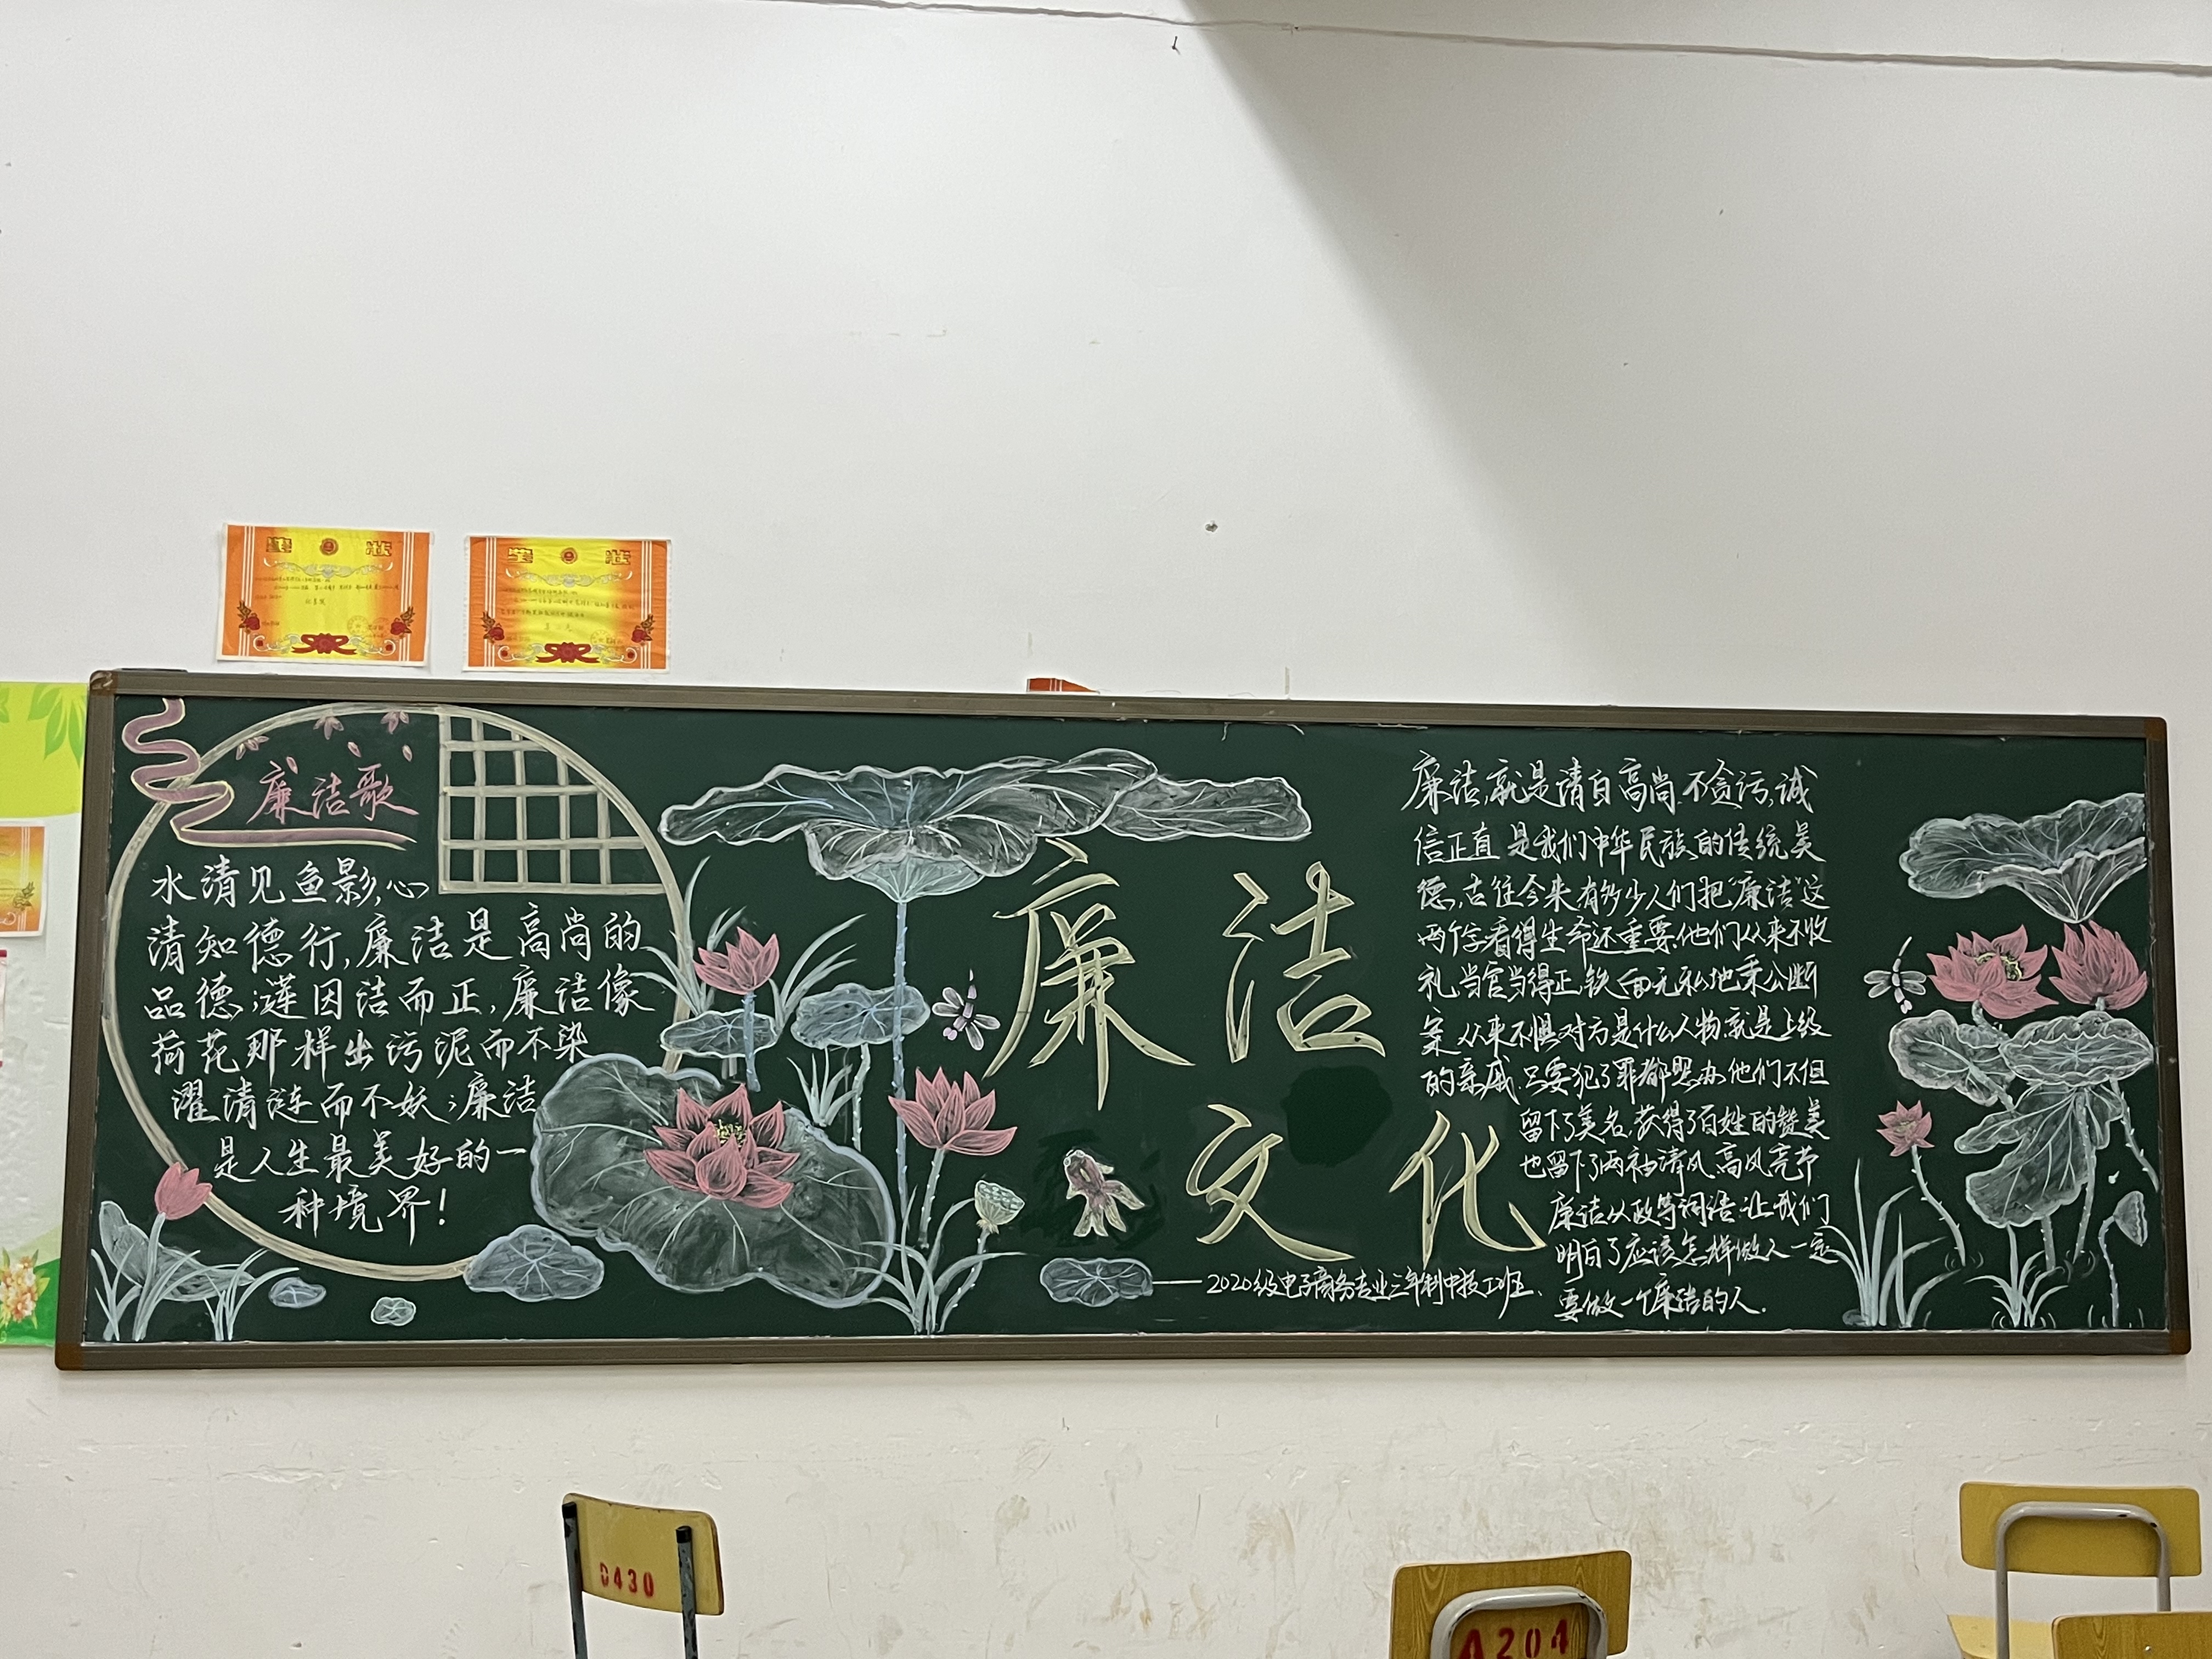 奖 状
奖 状
廉洁歌
水清见鱼影,心
清知德行,廉洁是高尚的
品德;莲因洁而正,廉洁像
荷花那样出污泥而不染
濯清涟而不妖;廉洁
是人生最美好的一
种境界!
廉洁
文化
——2020级电子商务专业三年制中技1班
廉洁,就是清白高尚.不贪污,诚
信正直 是我们中华民族的传统美
德,古往今来 有多少人们把“廉洁”这
两个字看得生命还重要.他们从来不收
礼,当官当得正,铁面无私地秉公断
案.从来不惧对方是什么人物.就是上级
的亲戚.只要犯了罪都照办.他们不但
留下了美名,获得了百姓的赞美
也留下了两袖清风,高风亮节
廉洁从政等词语.让我们
明白了应该怎样做人一定
要做一个廉洁的人.
D430
A204